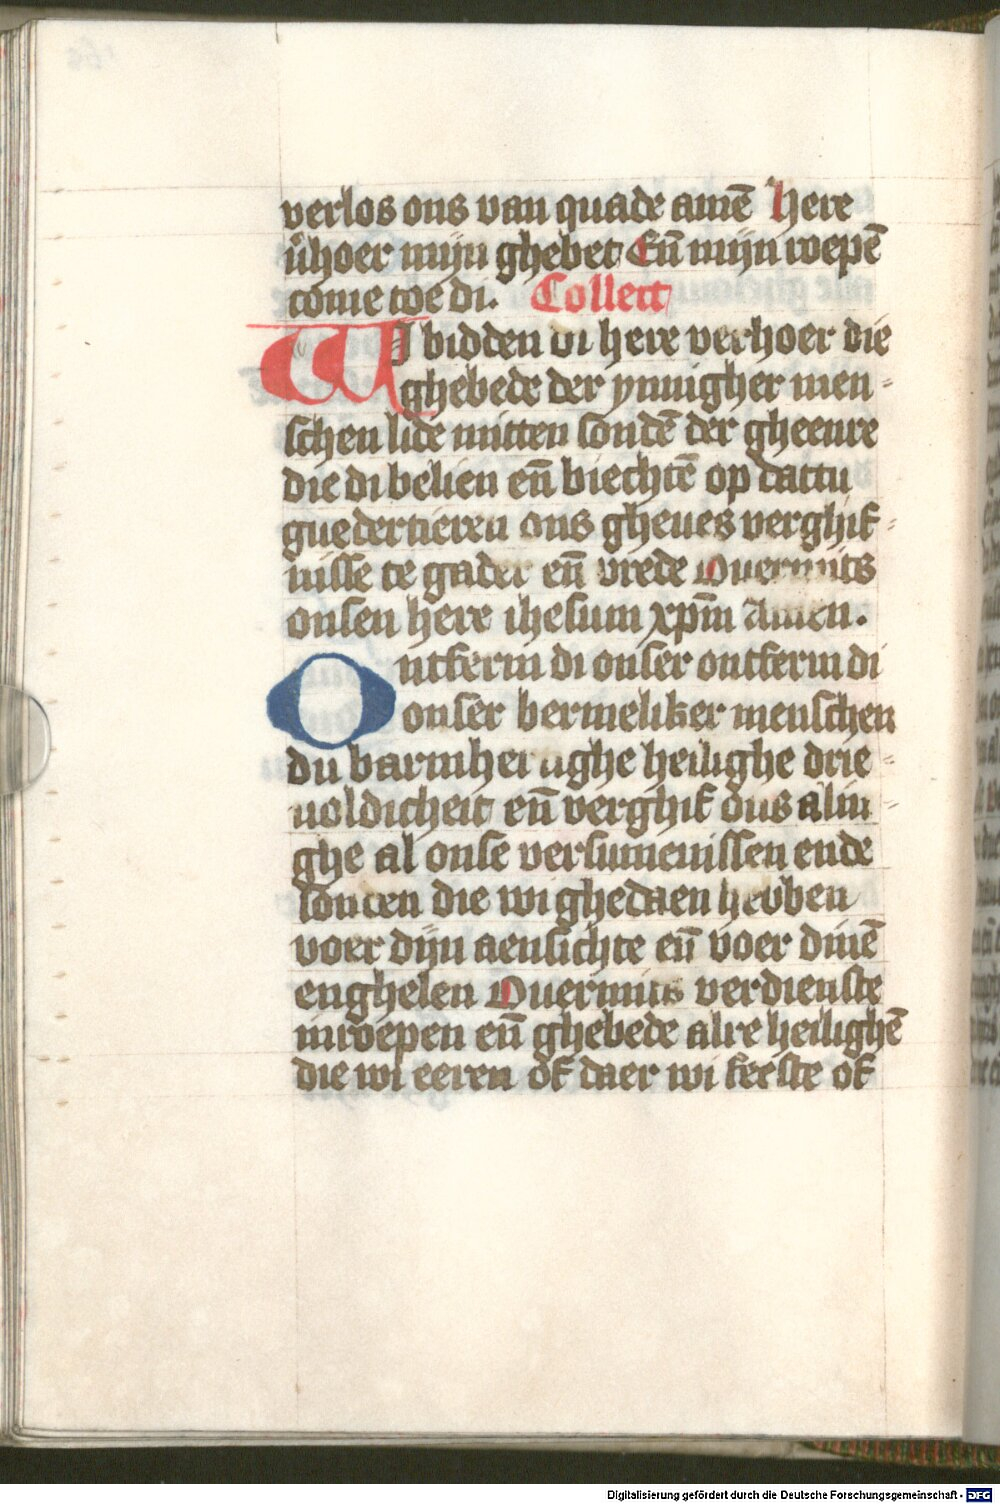 verlos ons van quade amē Here
v̄hoer mijn ghebet Eñ mijn roepē
come toe di. Collect
WI bidden di here verhoer die
ghebede der ynnigher men-
schen lide mitten sondē der gheenre
die di belien eñ biechtē op dattu
guedertieren ons gheues verghif-
nisse te gader eñ vrede Ouermits
onsen here ihesum xpm̄ Amen.
Ontferm di onser ontferm di
onser bermeliker menschen
du barmhertighe heilighe drie-
uoldicheit eñ verghif ons alin-
ghe al onse versumenissen ende
sonden die wi ghedaen hebben
voer dijn aensichte eñ voer dinē
enghelen Ouermits verdienste
inroepen eñ ghebede alre heilighē
die wi eeren of daer wi feeste of
Digitalisierung gefördert durch die Deutsche Forschungsgemeinschaft - DFG